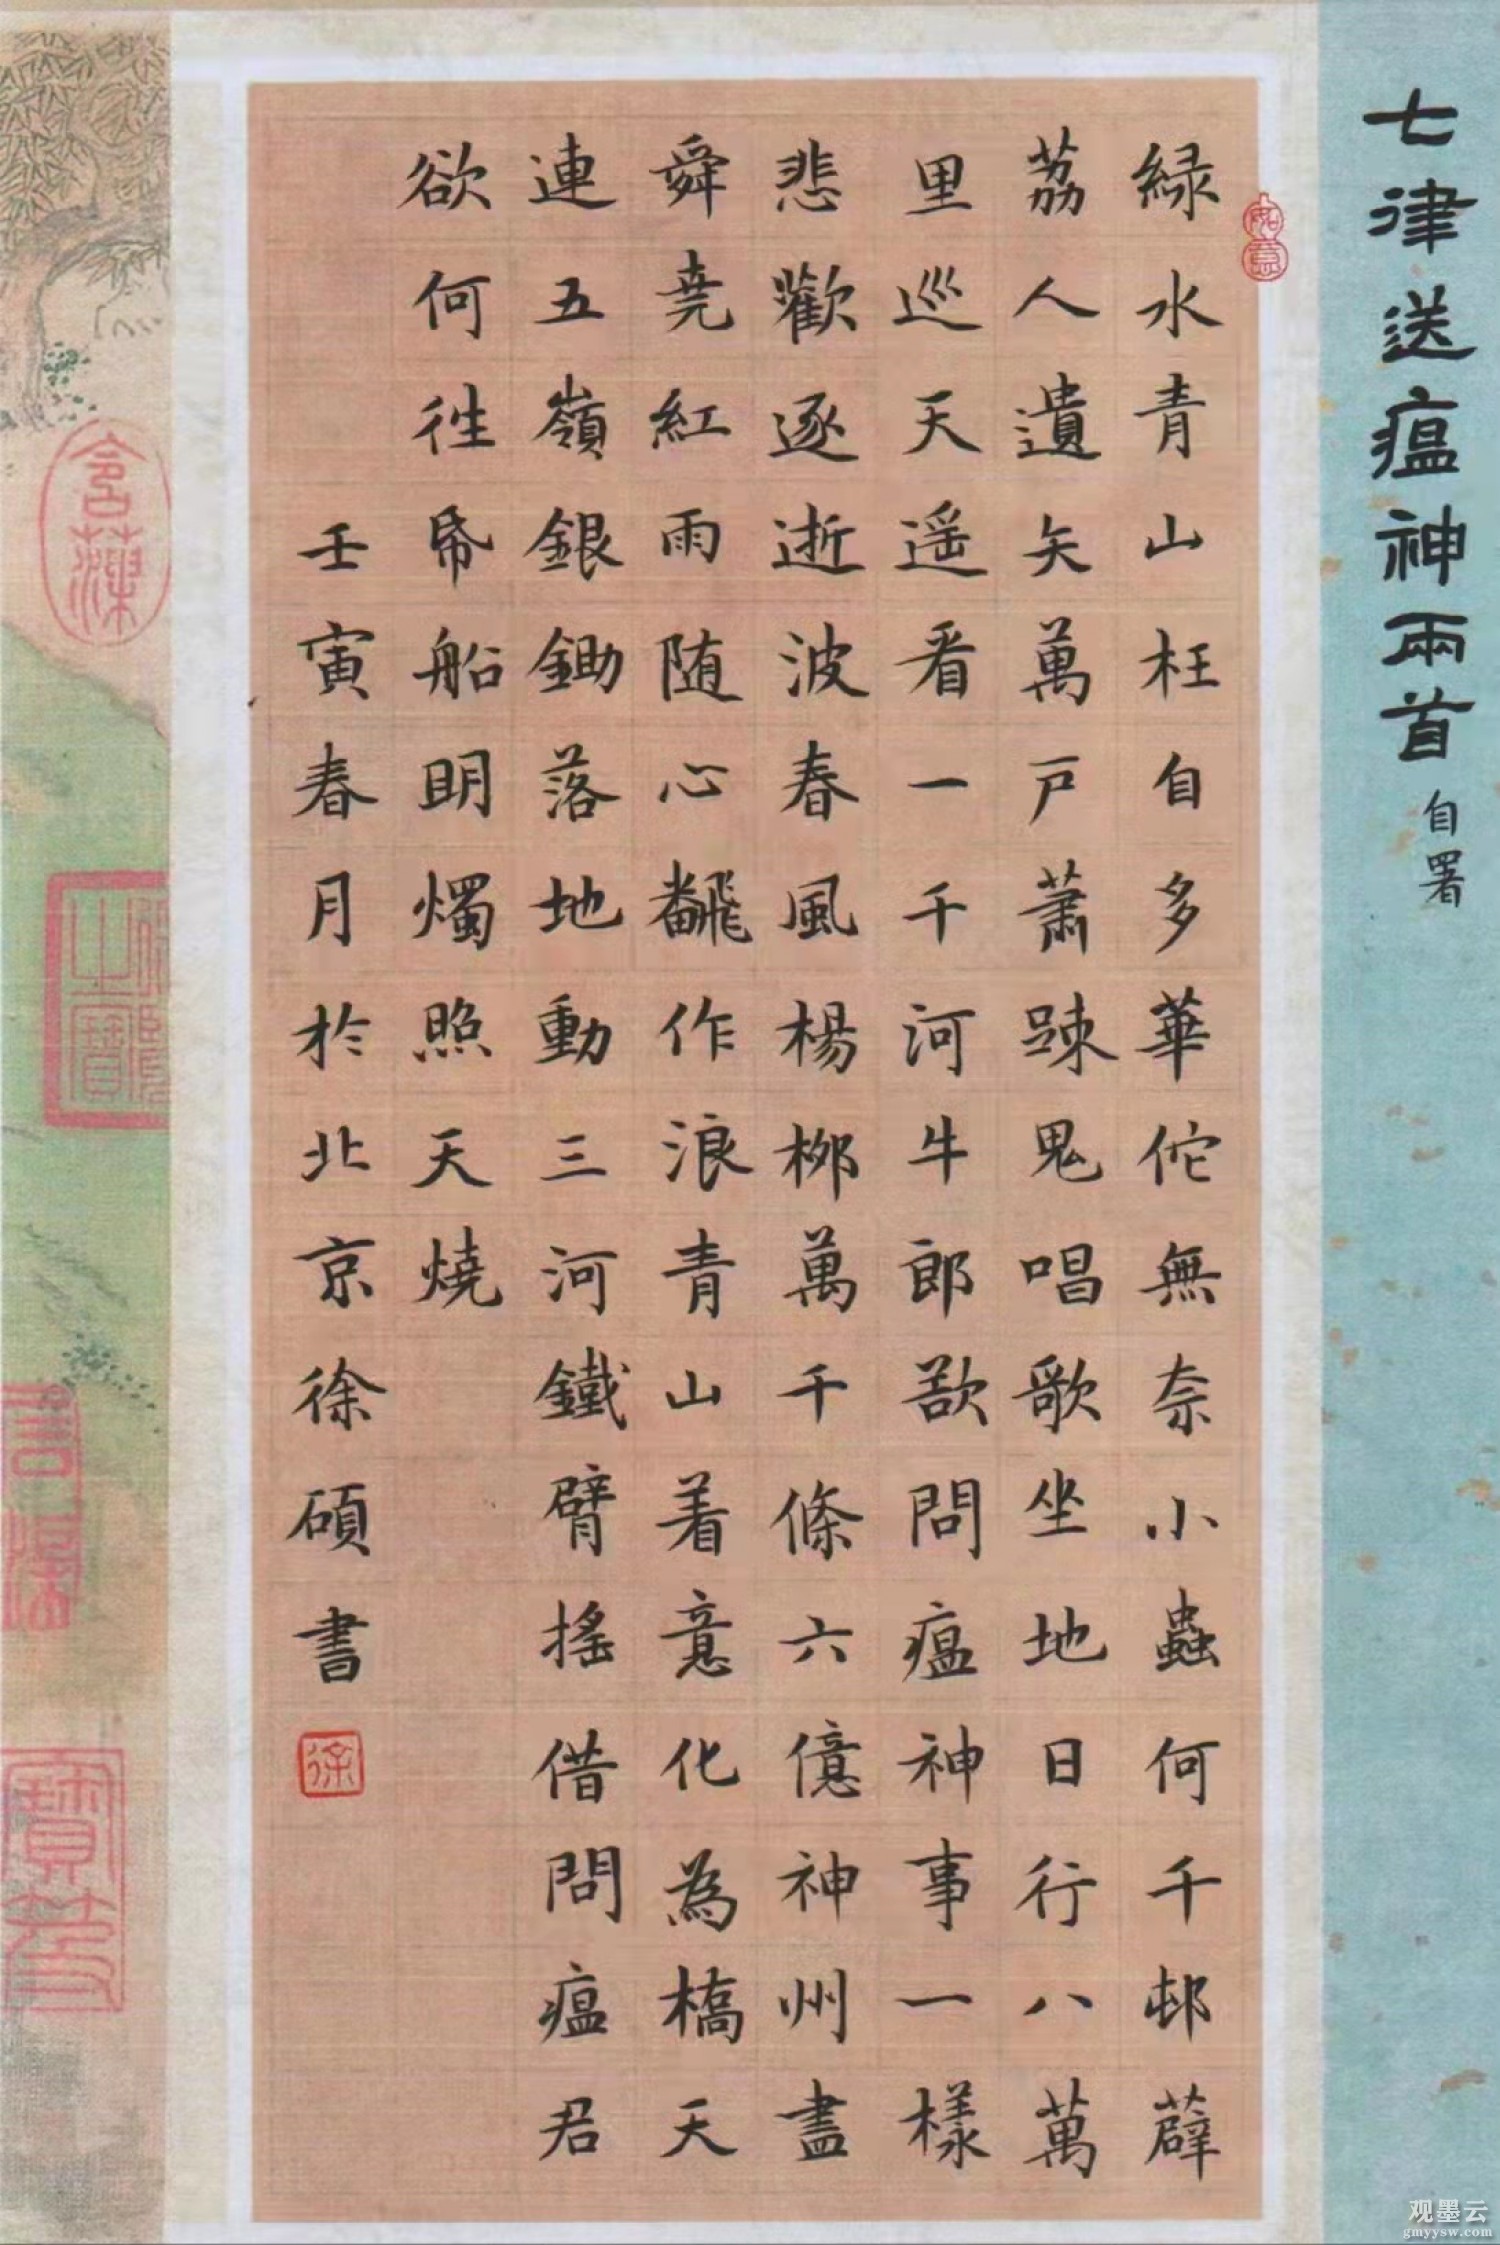 七律送瘟神兩首
自署
如意
緑水青山枉自多華佗無奈小蟲何千邨薜
荔人遺矢萬戸蕭踈鬼唱歌坐地日行八萬
里巡天遥看一千河牛郎欲問瘟神事一樣
悲歡逐逝波春風楊柳萬千條六億神州盡
舜堯紅雨随心飜作浪青山着意化為橋天
連五嶺銀鋤落地動三河鐵臂搖借問瘟君
欲何徃帋船明燭照天燒
壬寅春月於北京徐碩書
徐
观墨云
gmyysw.com